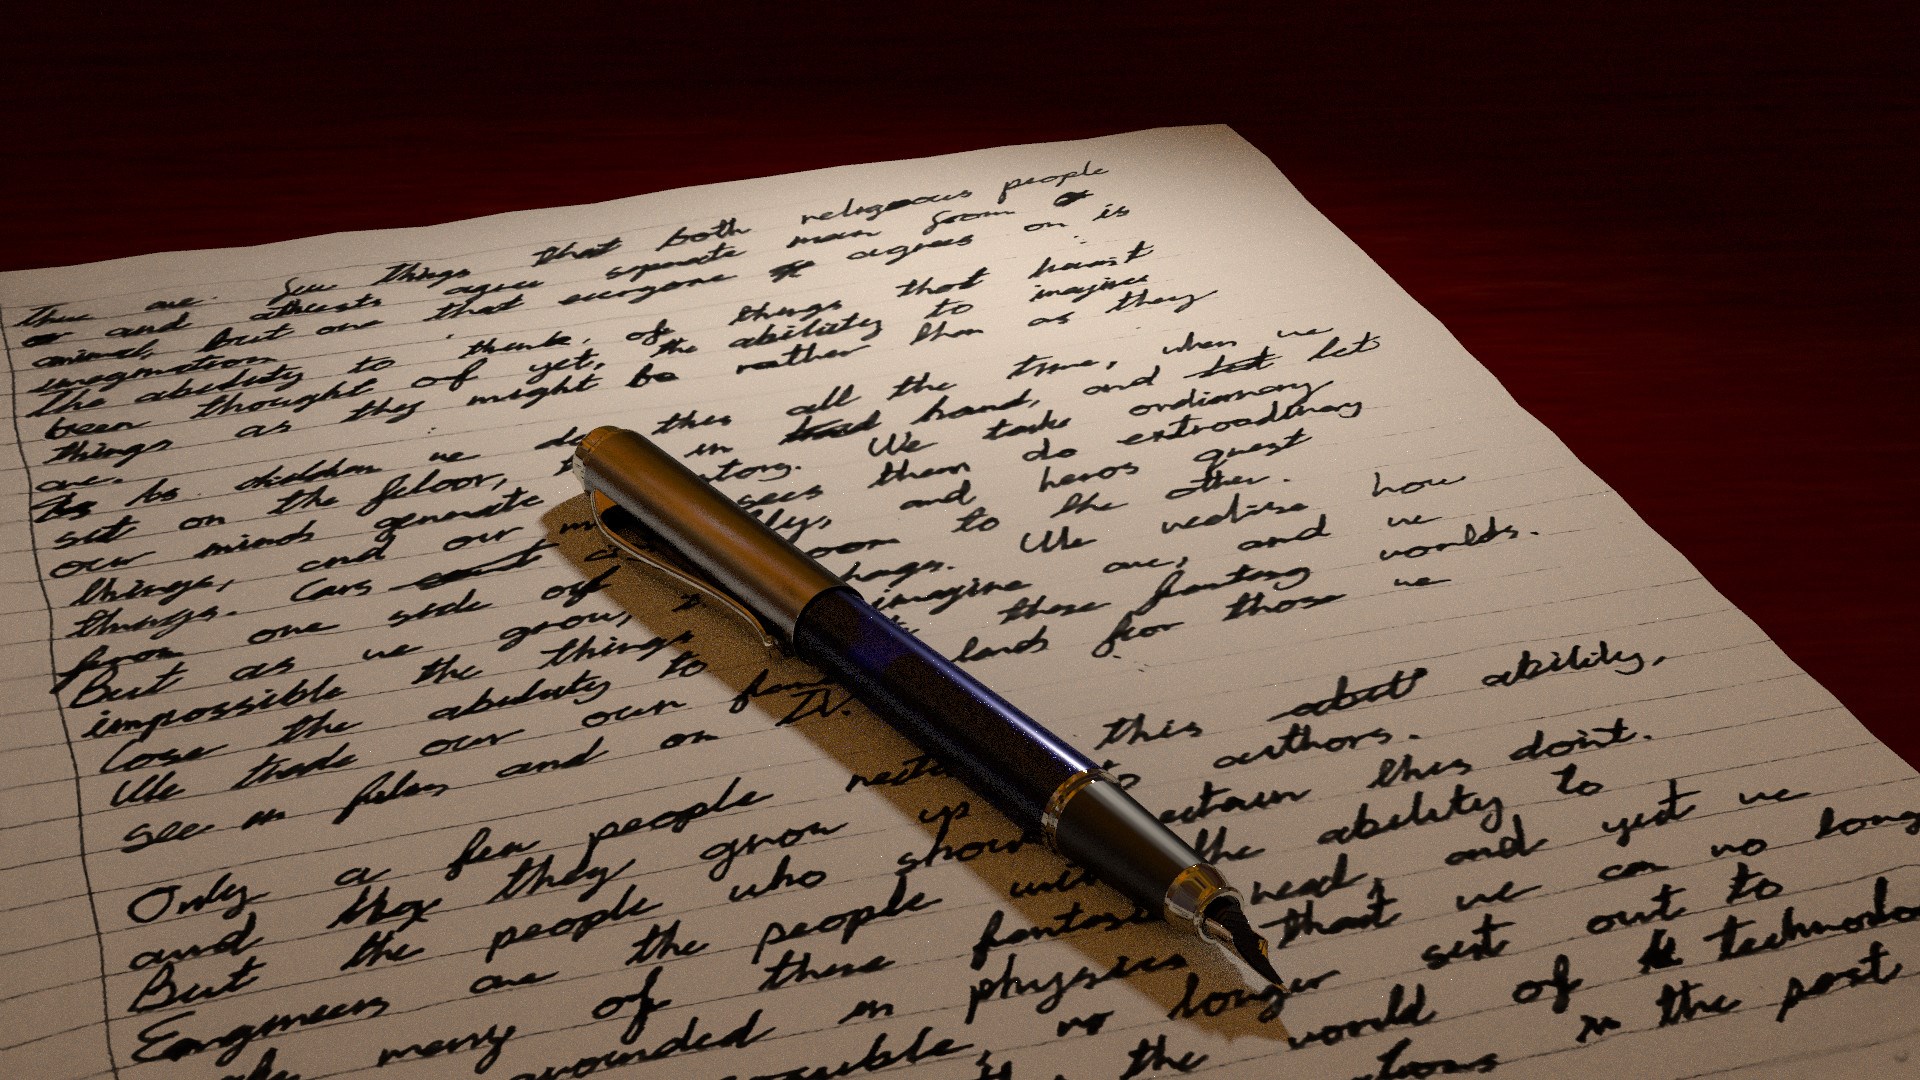 There are few things that both religeous people
or and atheists agree seperate man from
animal, but one that everyone agrees on is
imagination
The abiluty to think, of things that havn't
been thought of yet, the ability to imagine
things as they might be rather than as they
are.
As As children we do this all the time, when we
set on the feloor, in hand, and let
our minds generate story. We take ordionary
things, and our sees them do extroodinary
things. Cars and heros quest
from one side of to the other.
But as we grow, We realise how
impossible the things imagine are, and we
Lose the abiluty to these fantasy worlds.
We trade our own lands for those we
see in films and on TV.
Only a few people this ability,
and they grow up authors.
But the people who this don't.
Engineers are the people the ability to
many of these read, and yet we
grounded in physics that we can no long
no longer set out to
the world of technolo
in the past